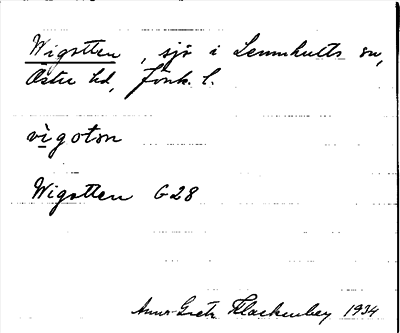 Wigotten, sjö i Lemnhults sn,
Östra hd, Jönk. l.
vìgotən
Wigotten G28
Anna-Greta Klackenberg 1934